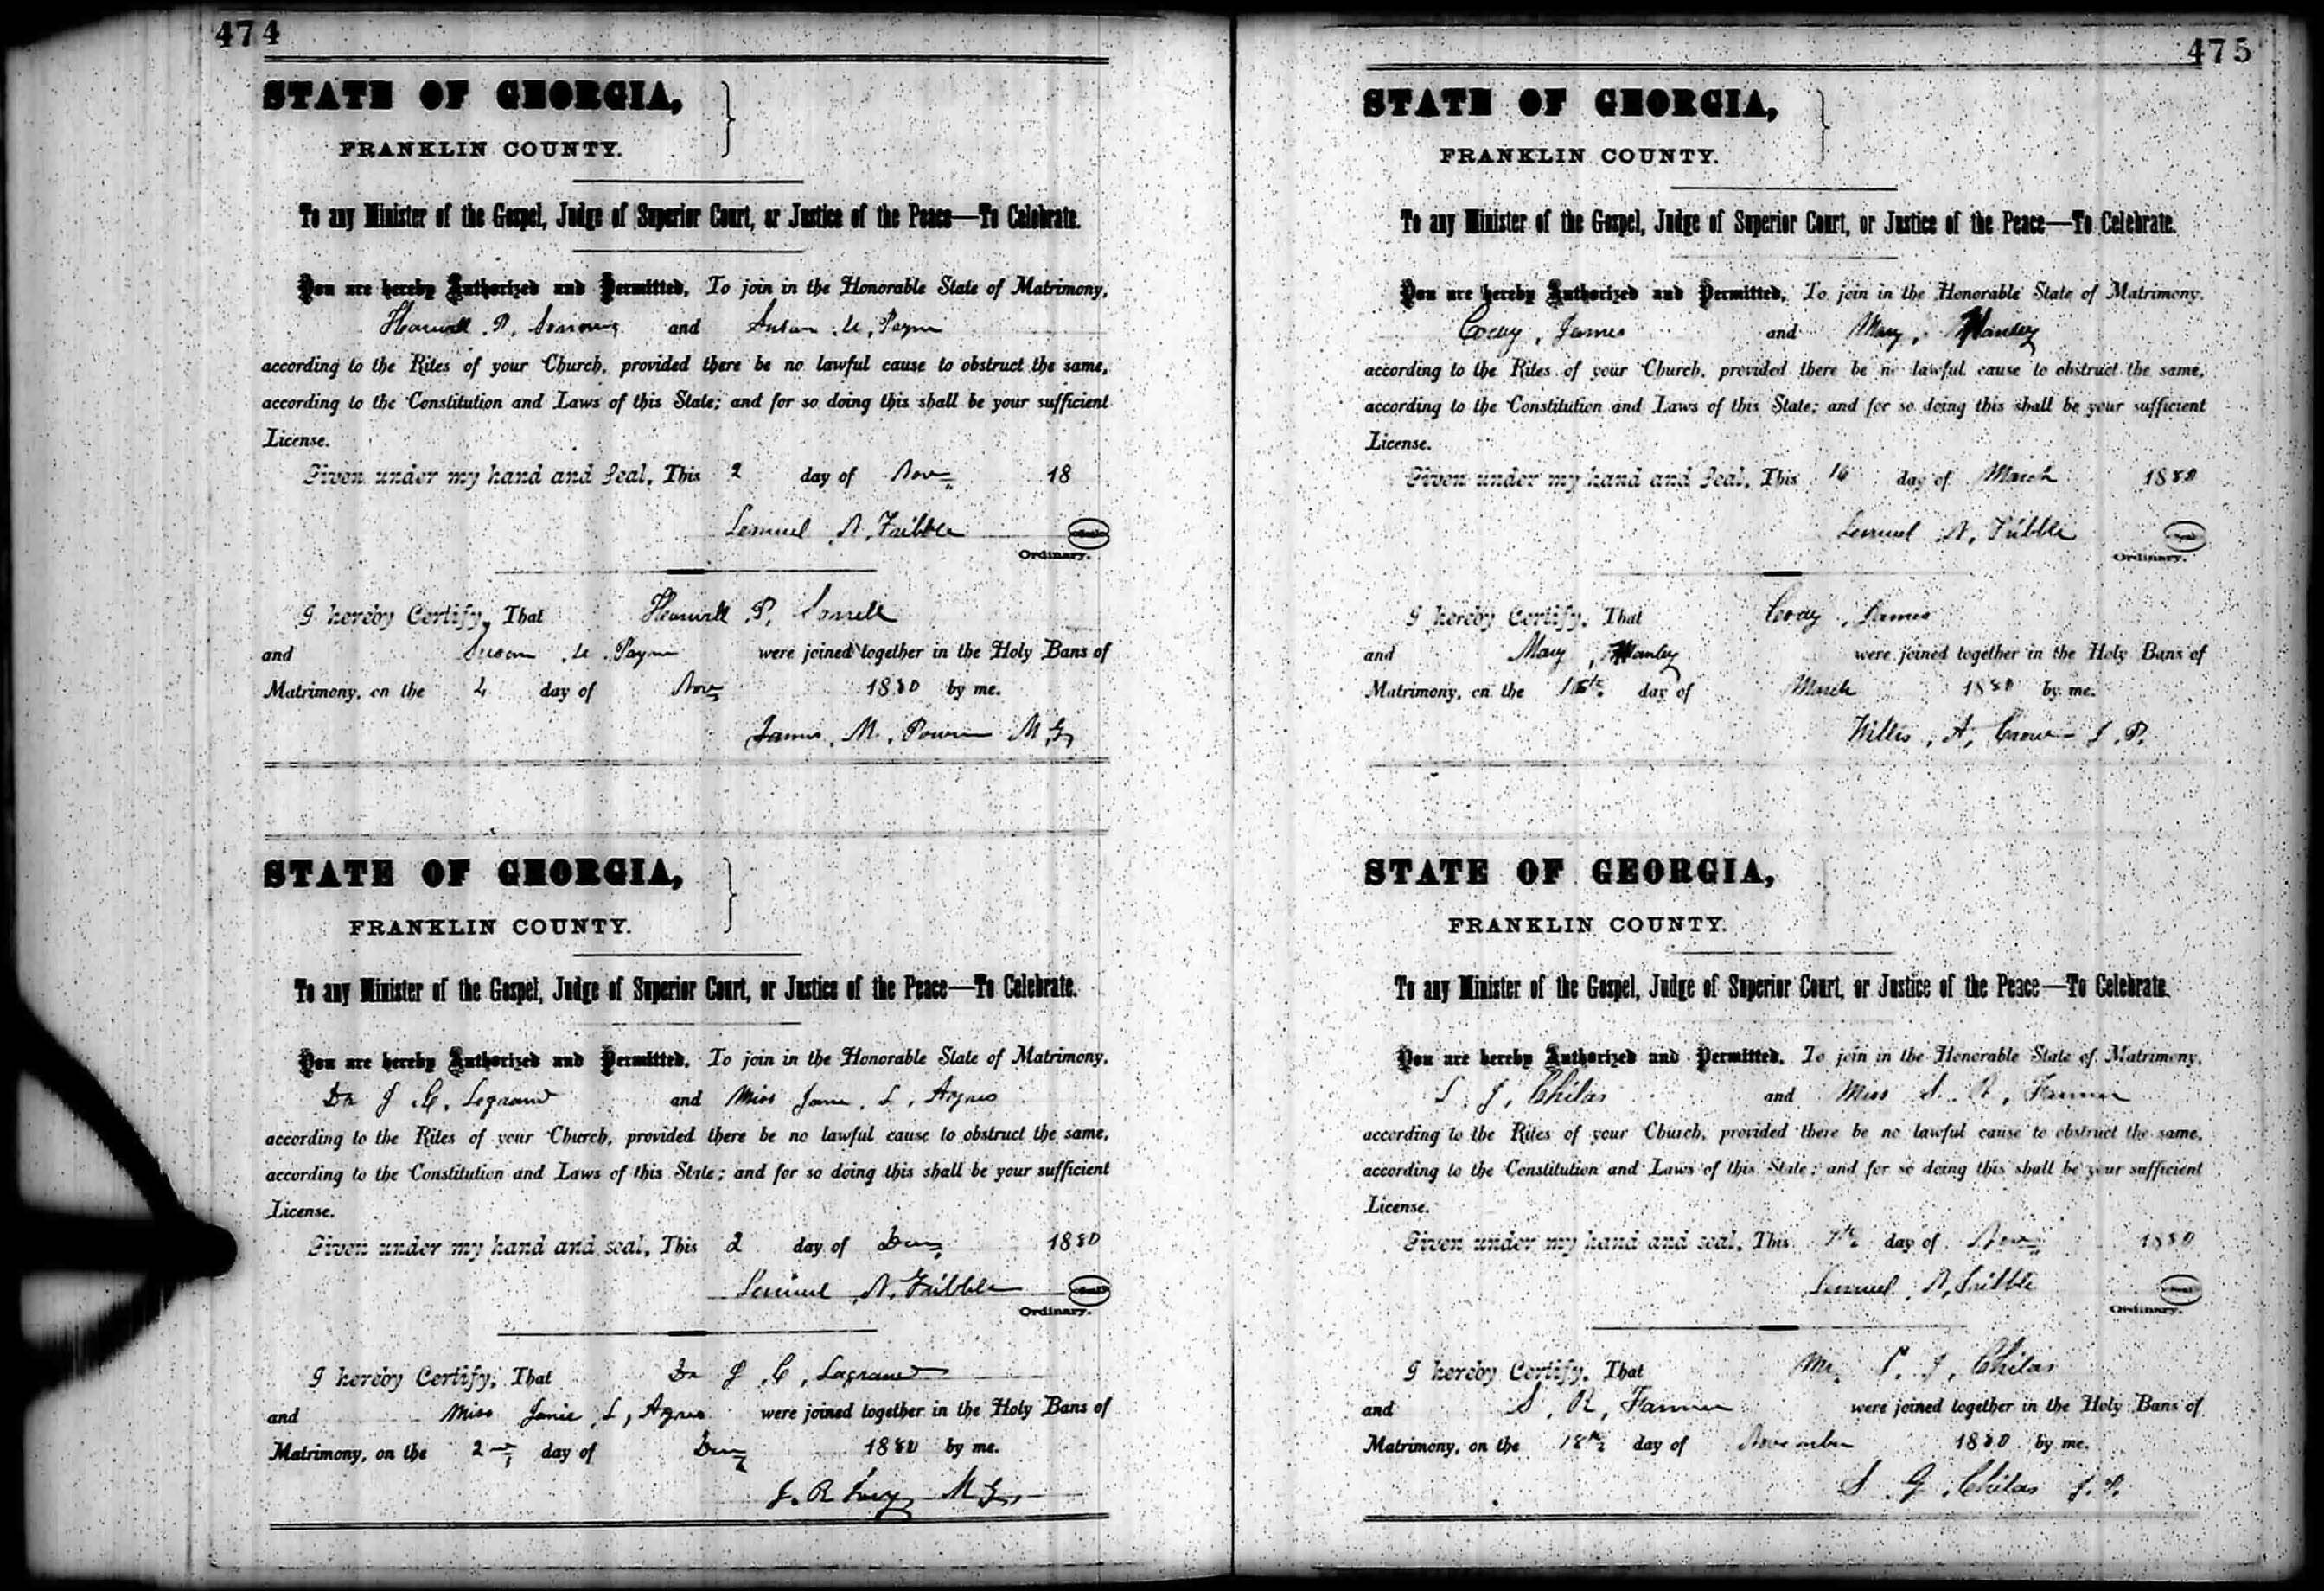 474
STATE OF GEORGIA,
FRANKLIN COUNTY.
To any Minister of the Gospel, Judge of Superior Court, or Justice of the Peace—To Celebrate.
You are hereby Authorized and Permitted, To join in the Honorable State of Matrimony,
P. and Susan M. Payne
according to the Rites of your Church, provided there be no lawful cause to obstruct the same,
according to the Constitution and Laws of this State; and for so doing this shall be your sufficient
License.
Given under my hand and Seal, This 2 day of Nov 18
Lemuel N. Tribble
Ordinary.
I hereby Certify, That P.
and Susan M Payne were joined together in the Holy Bans of
Matrimony, on the 4 day of Nov 1880 by me.
James M. M.G.
STATE OF GEORGIA,
FRANKLIN COUNTY.
To any Minister of the Gospel, Judge of Superior Court, or Justice of the Peace—To Celebrate.
You are hereby Authorized and Permitted, To join in the Honorable State of Matrimony,
Dr J. C. Legrand and Miss Jane L. Agnes
according to the Rites of your Church, provided there be no lawful cause to obstruct the same,
according to the Constitution and Laws of this State; and for so doing this shall be your sufficient
License.
Given under my hand and seal, This 2 day of Dec 1880
Lemuel N. Tribble
Ordinary.
I hereby Certify, That Dr J. C. Legrand
and Miss Janie L, were joined together in the Holy Bans of
Matrimony, on the 2 day of Dec 1880 by me.
J. R. M.G.
475
STATE OF GEORGIA,
FRANKLIN COUNTY.
To any Minister of the Gospel, Judge of Superior Court, or Justice of the Peace—To Celebrate.
You are hereby Authorized and Permitted, To join in the Honorable State of Matrimony,
Cody, James and Mary, Manley
according to the Rites of your Church, provided there be no lawful cause to obstruct the same,
according to the Constitution and Laws of this State; and for so doing this shall be your sufficient
License.
Given under my hand and Seal, This day of March 1880
Lemuel N. Tribble
Ordinary.
I hereby Certify, That Cody, James
and Mary, Manley were joined together in the Holy Bans of
Matrimony, on the day of March 1880 by me.
Willis, A. Crow J.P.
STATE OF GEORGIA,
FRANKLIN COUNTY.
To any Minister of the Gospel, Judge of Superior Court, or Justice of the Peace—To Celebrate.
You are hereby Authorized and Permitted, To join in the Honorable State of Matrimony,
J. Chitas and Miss S. R. Farmer
according to the Rites of your Church, provided there be no lawful cause to obstruct the same,
according to the Constitution and Laws of this State; and for so doing this shall be your sufficient
License.
Given under my hand and seal, This 7th day of Nov 1880
Lemuel N. Tribble
Ordinary.
I hereby Certify, That Mr. J. Chitas
and S. R. Farmer were joined together in the Holy Bans of
Matrimony, on the 18th day of November 1880 by me.
S. G. Chitas J.P.